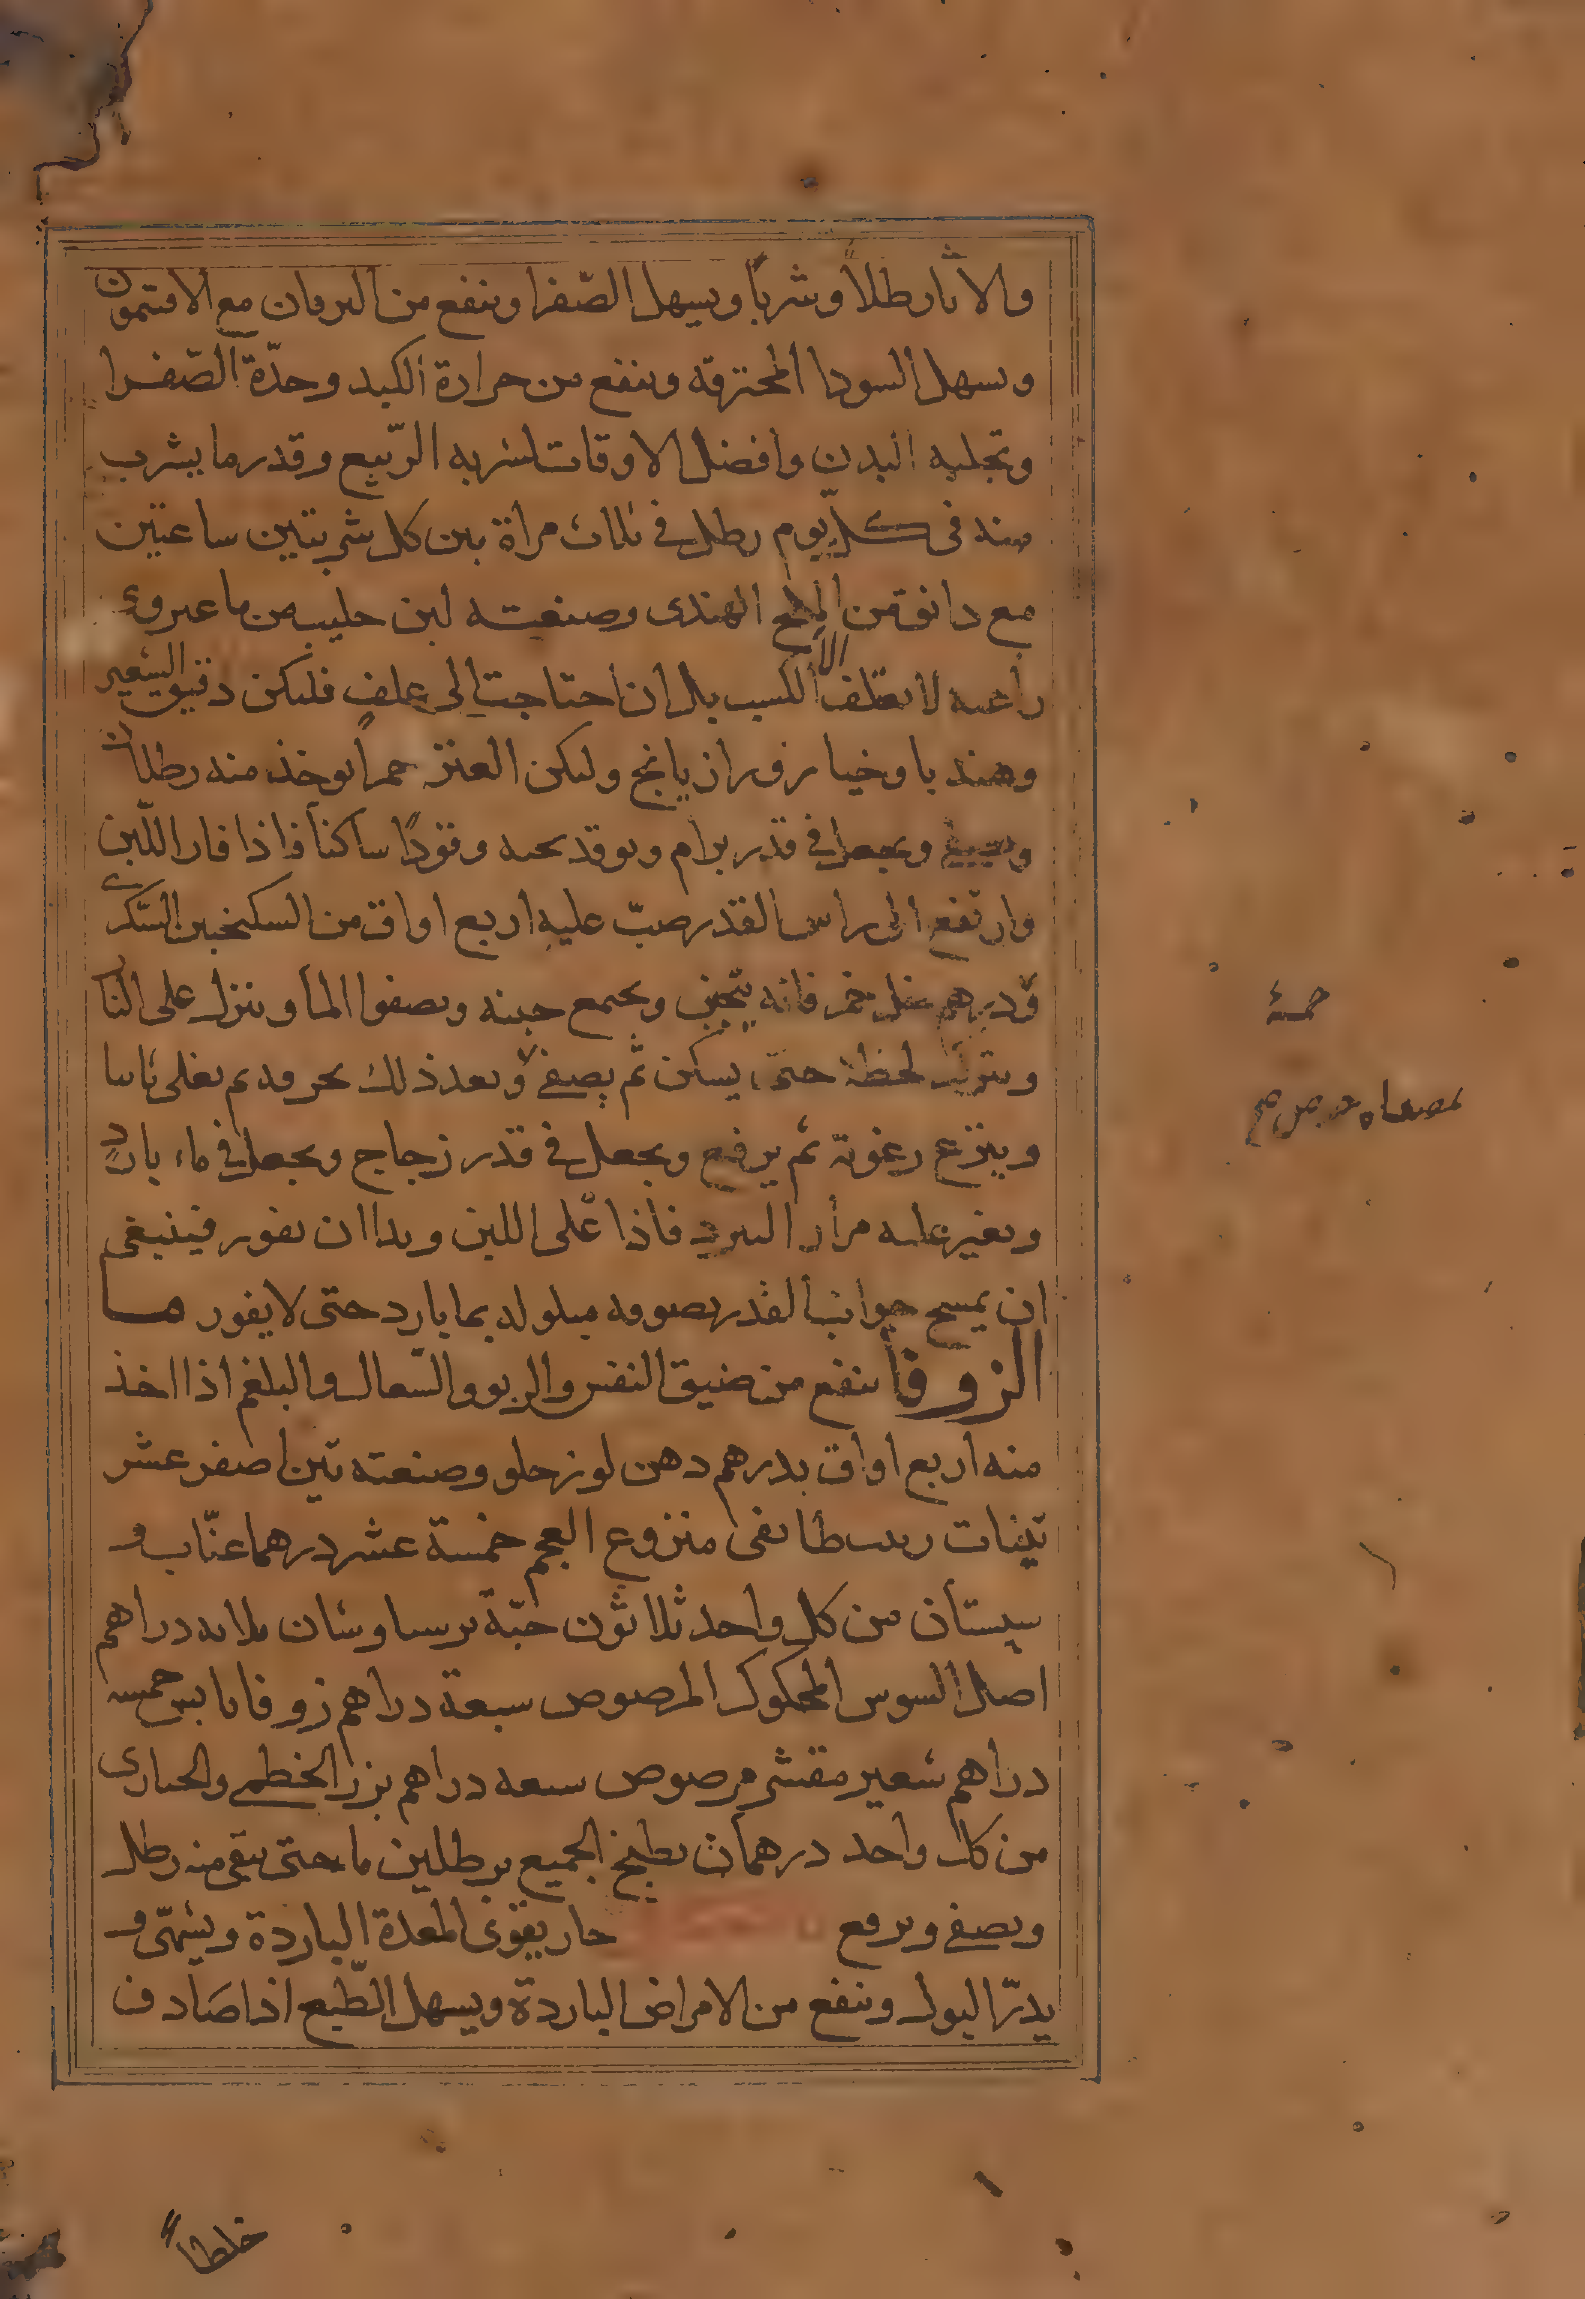 والاثار طلاً وشرباً ويسهل الصّفرا وينفع من اليرقان مع الافتيمون
ويسهل السودا المحترقه وينفع من حرارة الكبد وحدّة الصّفرا
وتجلبه البدن وافضل الاوقات لشربه الرّبيع وقدر ما يشرب
منه فى كل يوم رطل فى ثلاث مراة بين كل شربتين ساعتين
مع دانق من الملح الهندى وصنعته لبن حليب من ماعز
راعيه لا تعتلف الا الكسب بل ان احتاجت الى علف فليكن دقيق الشعير
وهندبا وخيار ورازيانج وليكن العنز حمرا يوخذ منه رطلان
ويجعل فى قدر برام ويوقد تحته وقودًا ساكناً فاذا فار اللّبن
وارتفع الى راس القدر صبّ عليه اربع اواق من السكنجبين السّكرى
ودرهم خل خمر فانه يتجبن ويجمع جبنه ويصفوا الما وينزل على النار
ويترك لحظة حتى يسكن ثم يصفى وبعد ذلك ثم يغلى ثانيا
وينزع رغوته ثم يرفع ويجعل فى قدر زجاج ويجعل فى ماء بارد
ويغير عليه مرار البرد فاذا غلى اللبن وبدا ان يفور فينبغى
ان يمسح جوانب القدر بصوفه مبلوله بما بارد حتى لا يفور مـا
الزوفا ينفع من ضيق النفس والربو والسّعال والبلغم اذا اخذ
منه اربع اواق بدرهم دهن لوز حلو وصنعته تين اصفر عشر
تينات زبيب طايفى منزوع العجم خمسة عشر درهما عنّاب و
سبستان من كل واحد ثلاثون حبّة برسياوشان ثلاثه دراهم
اصل السوس المحكوك المرصوص سبعة دراهم زوفا يابس خمسه
دراهم شعير مقشر مرصوص سبعه دراهم بزر الخطمى والخبازى
من كل واحد درهمان يطبخ الجميع برطلين ما حتى يبقى منه رطل
ويصفى ويرفع حار يقوى المعدة الباردة ويشهّى و
يدرّ البول وينفع من الامراض الباردة ويسهل الطّبع اذا صادف
خلطاً